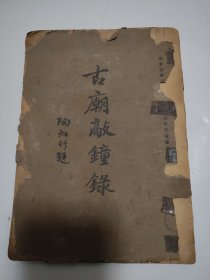 古廟敲鐘錄
陶知行題